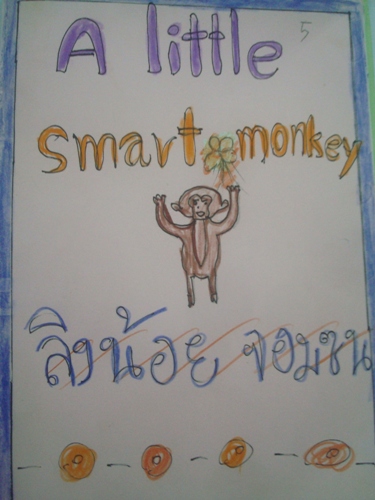 A little
5
smart monkey
ลิงน้อย จอมซน